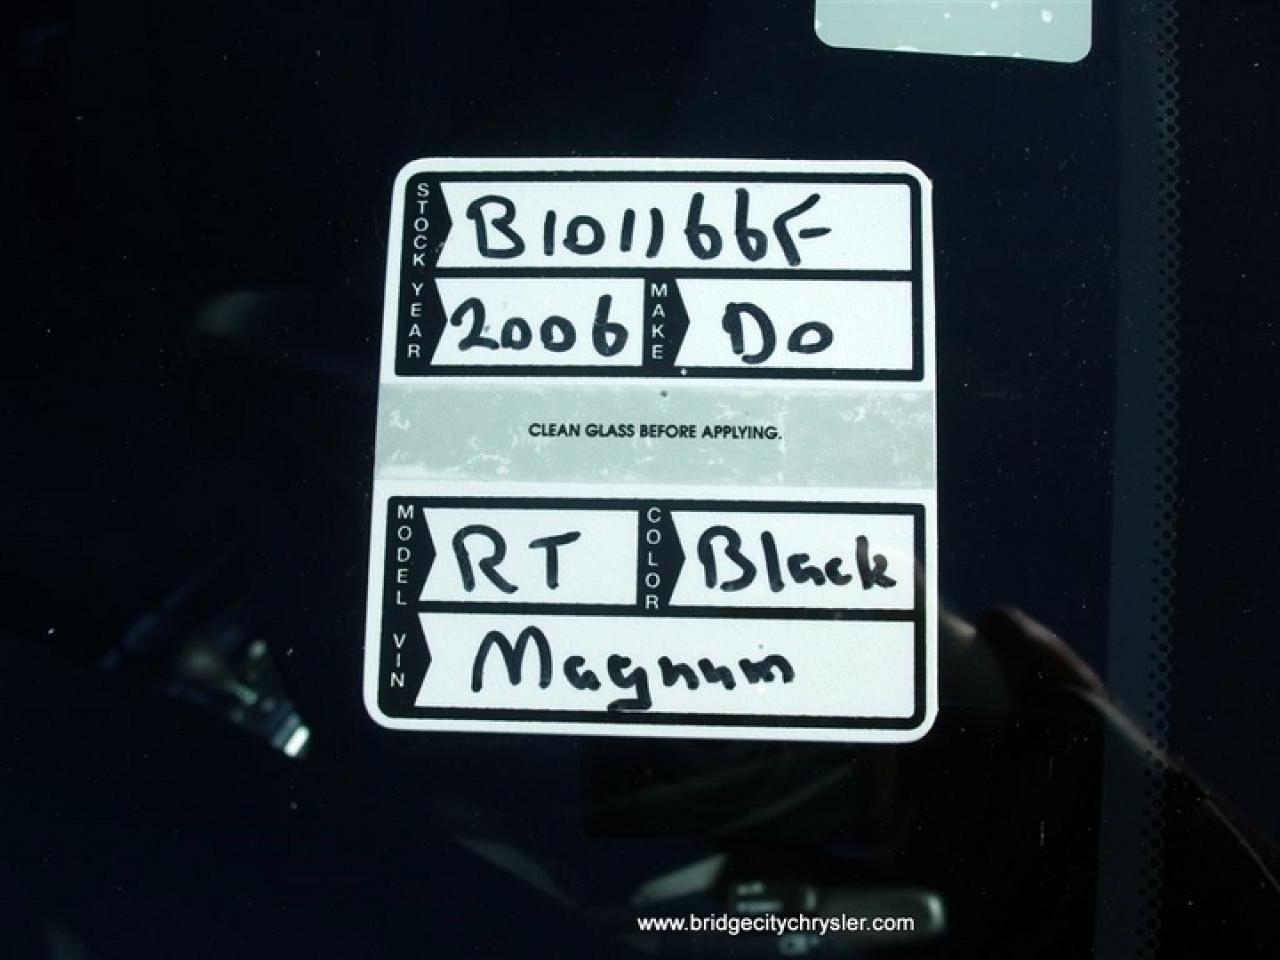 STOCK B101166F
YEAR 2006 MAKE Do
CLEAN GLASS BEFORE APPLYING.
MODEL RT COLOR Black
VIN Magnum
www.bridgecitychrysler.com